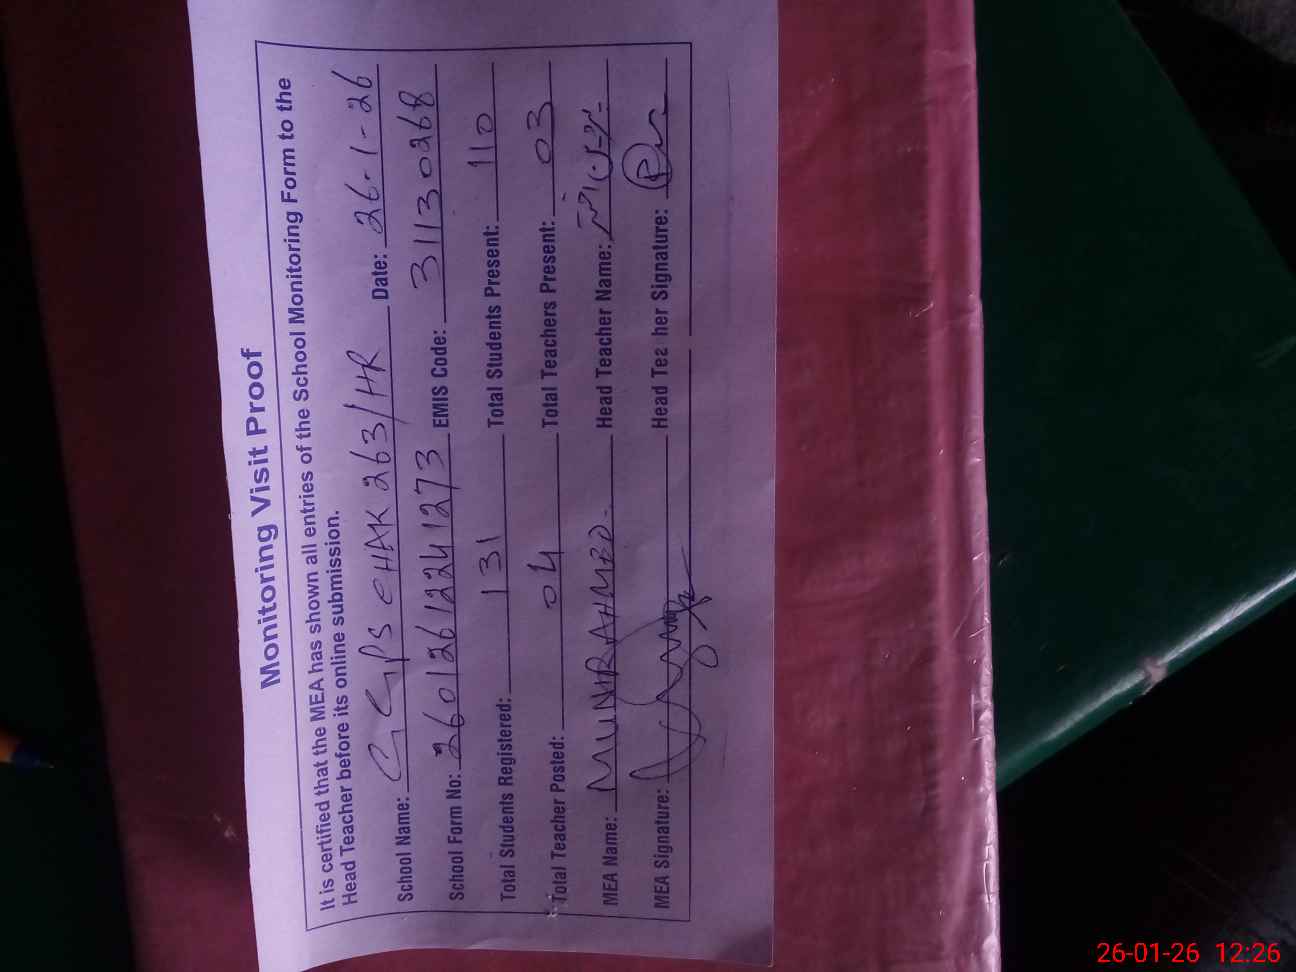 Monitoring Visit Proof
It is certified that the MEA has shown all entries of the School Monitoring Form to the
Head Teacher before its online submission.
School Name: GGPS CHAK 263/HR Date: 26-1-26
School Form No: 260126122241273 EMIS Code: 31130268
Total Students Registered: 131 Total Students Present: 110
Total Teacher Posted: 04 Total Teachers Present: 03
MEA Name: MUNIR AHMED Head Teacher Name:
MEA Signature: Head Tea her Signature:
26-01-26 12:26